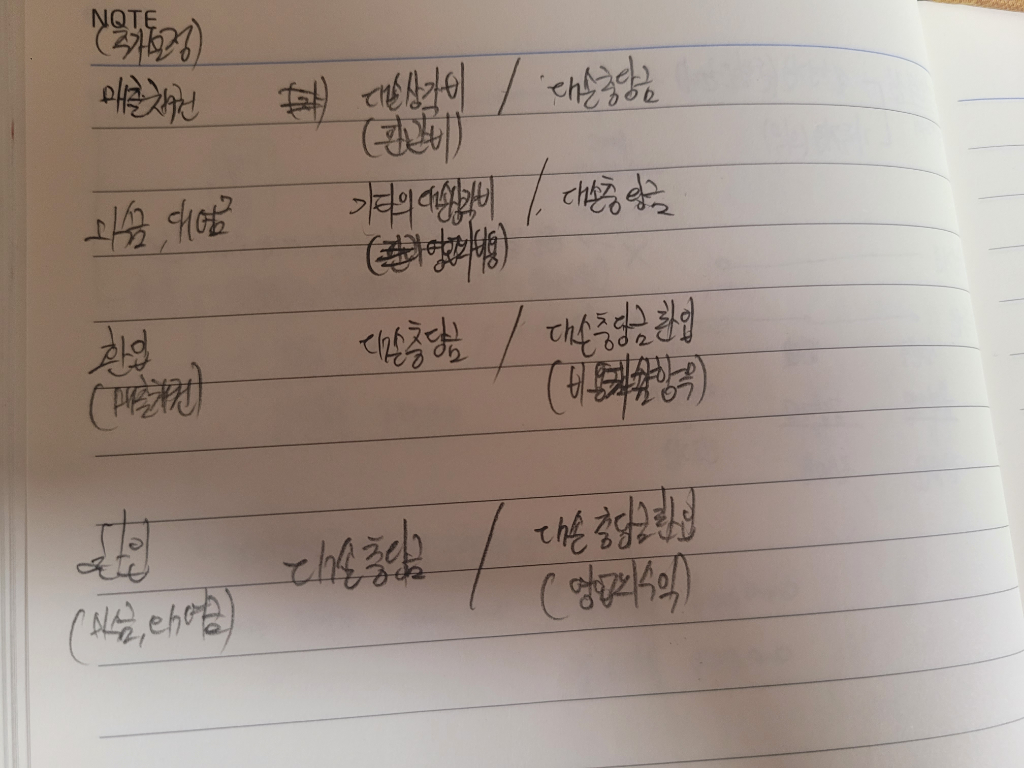 NOTE
매출채권 대손상각비 / 대손충당금
(판관비)
미수금, 대여금 기타의 대손상각비 / 대손충당금
(영업외비용)
환입 대손충당금 / 대손충당금환입
(매출채권)
환입 대손충당금 / 대손충당금환입
(미수금, 대여금) (영업외수익)